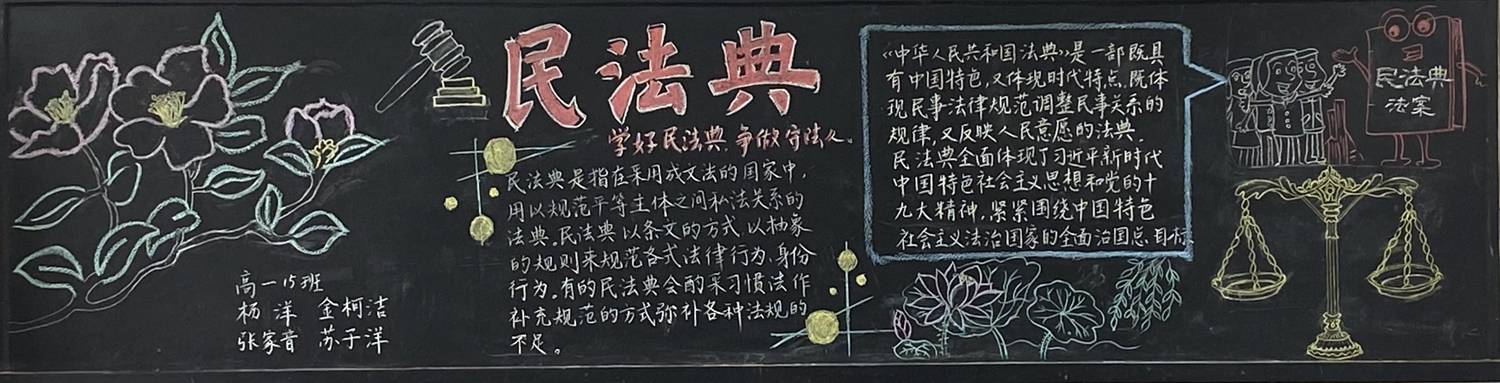 民法典
学好民法典 争做守法人。
民法典是指在采用成文法的国家中,
用以规范平等主体之间私法关系的
法典。民法典以条文的方式,以抽象
的规则来规范各式法律行为、身份
行为。有的民法典会酌采习惯法作
补充规范的方式弥补各种法规的
不足。
《中华人民共和国法典》是一部既具
有中国特色,又体现时代特点,既体
现民事法律规范调整民事关系的
规律,又反映人民意愿的法典.
民法典全面体现了习近平新时代
中国特色社会主义思想和党的十
九大精神,紧紧围绕中国特色
社会主义法治国家的全面治国总目标
民法典
法案
高一15班
杨洋 金柯洁
张家音 苏子洋